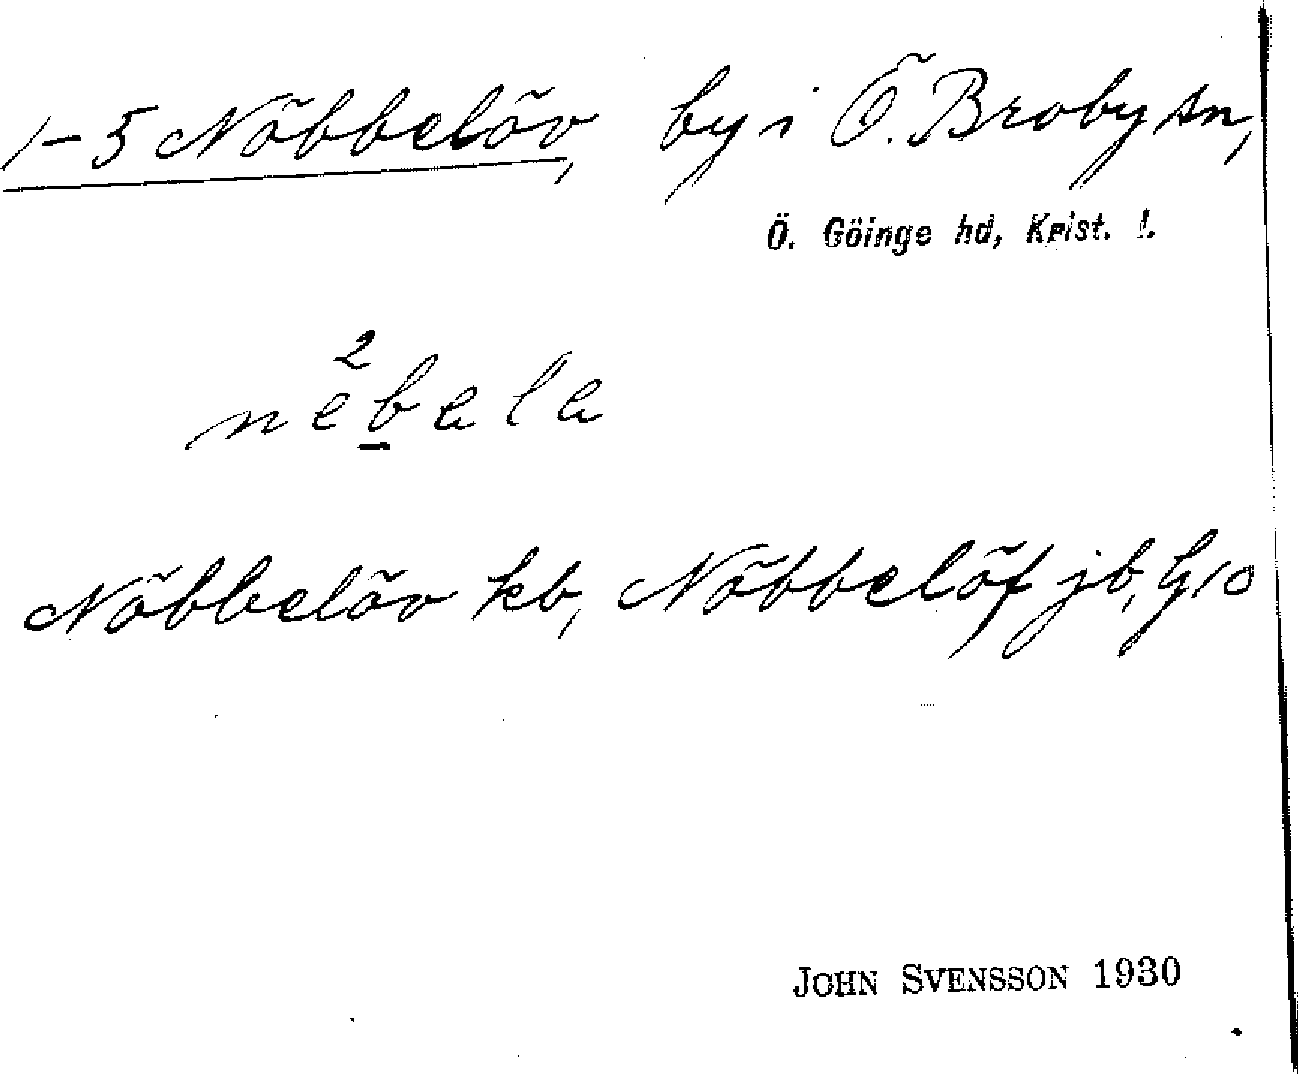 1-5 Nöbbelöv, by i Ö. Broby sn,
Ö. Göinge hd, Krist. l.
Nöbbelöv kb, Nöbbelöf jb, G10
JOHN SVENSSON 1930